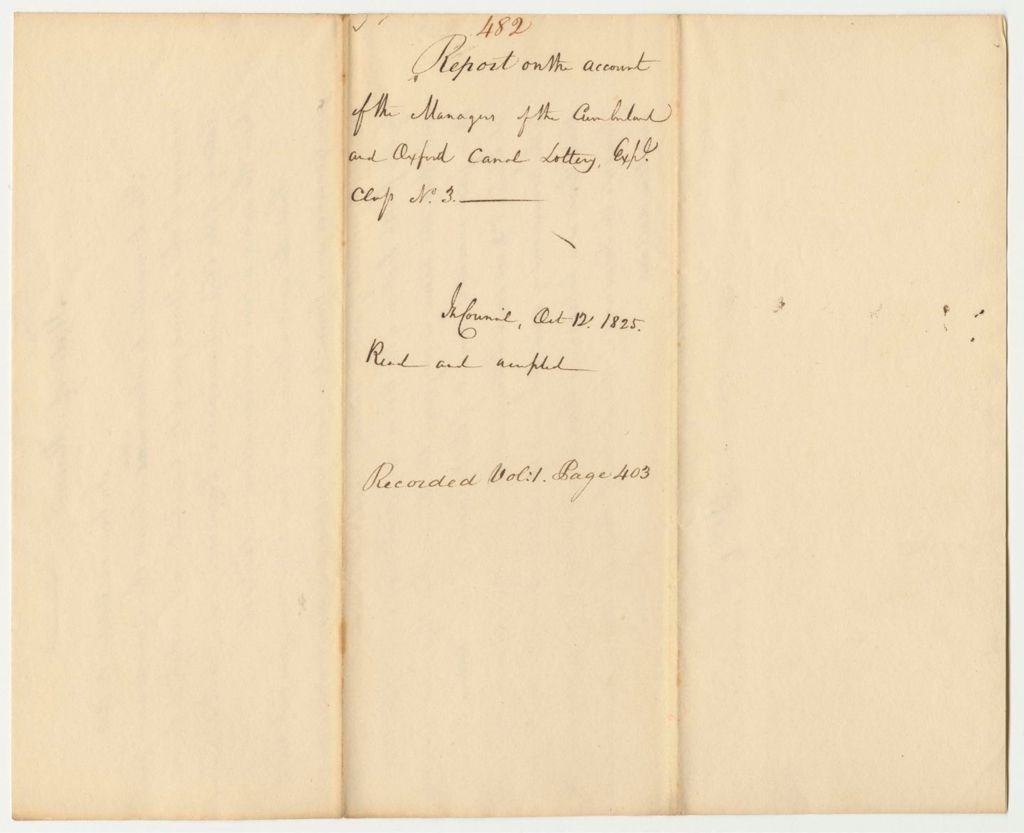 482
Report on the account
of the Managers of the Cumberland
and Oxford Canal Lottery, Exp.d
Class No. 3.
In Council, Oct 12. 1825.
Read and accepted
Recorded Vol: 1. Page 403